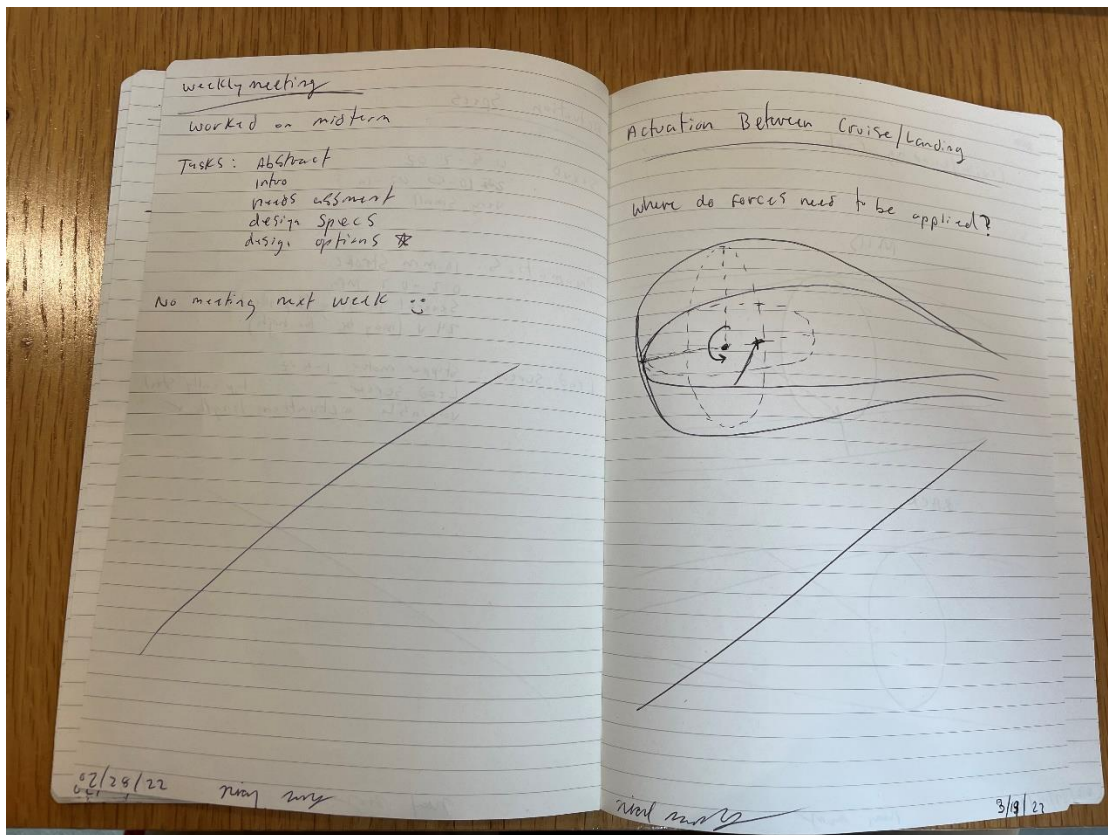 weekly meeting
worked on midterm
Tasks: Abstract
intro
needs assment
design specs
design options
No meeting next week
02/28/22
Actuation Between Cruise/Landing
Where do forces need to be applied?